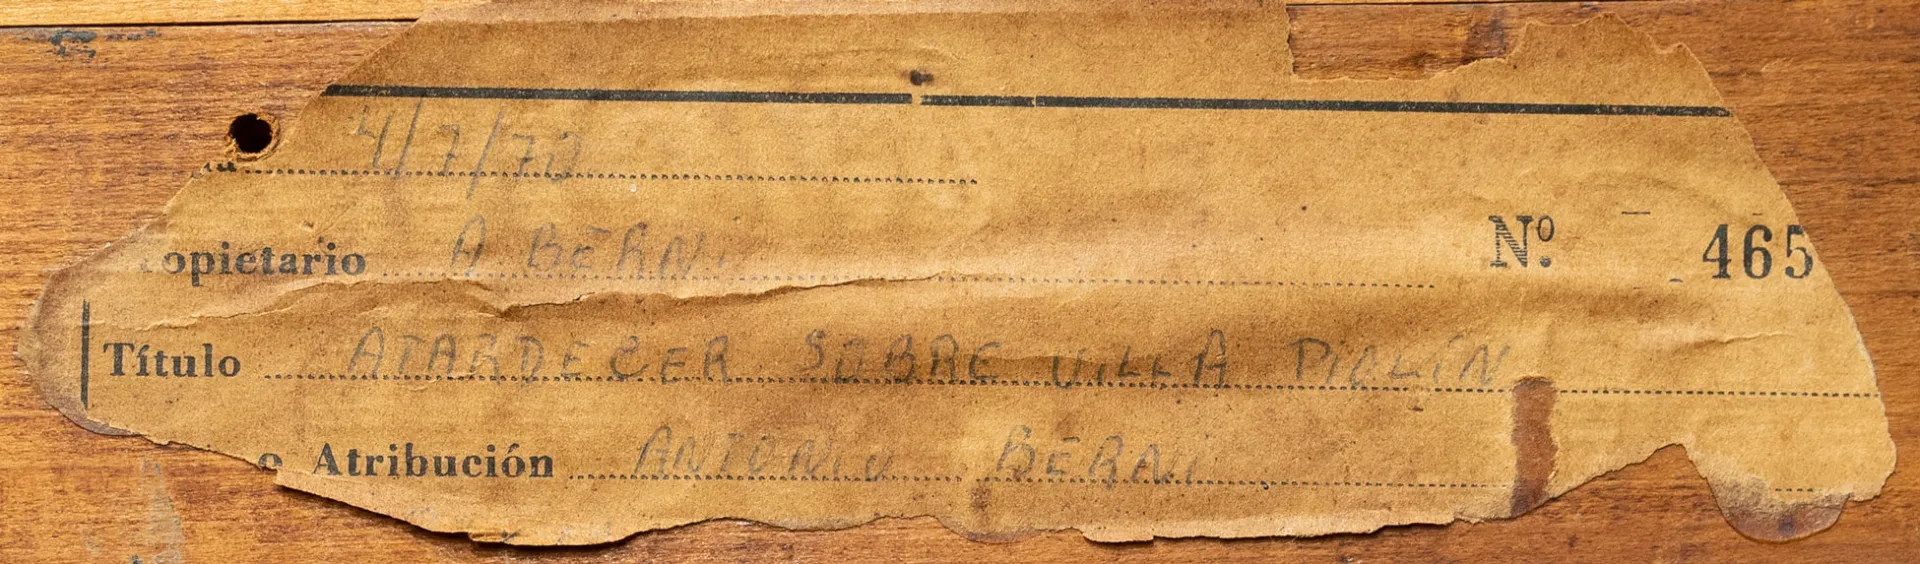 4/7/70
opietario A BERNI Nº 465
Título ATARDECER SOBRE VILLA PIOLÍN
o Atribución ANTONIO BERNI